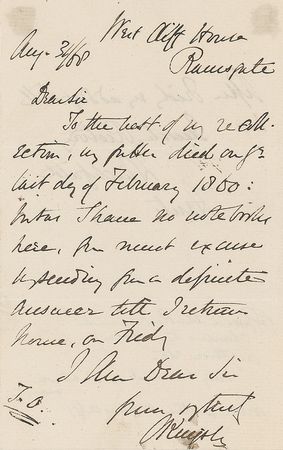 West Cliff House
Ramsgate
Aug. 31/68
Dear Sir
To the best of my recoll-
ection, my father died on ye
last day of February 1860:
but as I have no note books
here, you must excuse
my sending you a definite
answer till I return
home, on Friday
I am Dear Sir
yours
T. O.